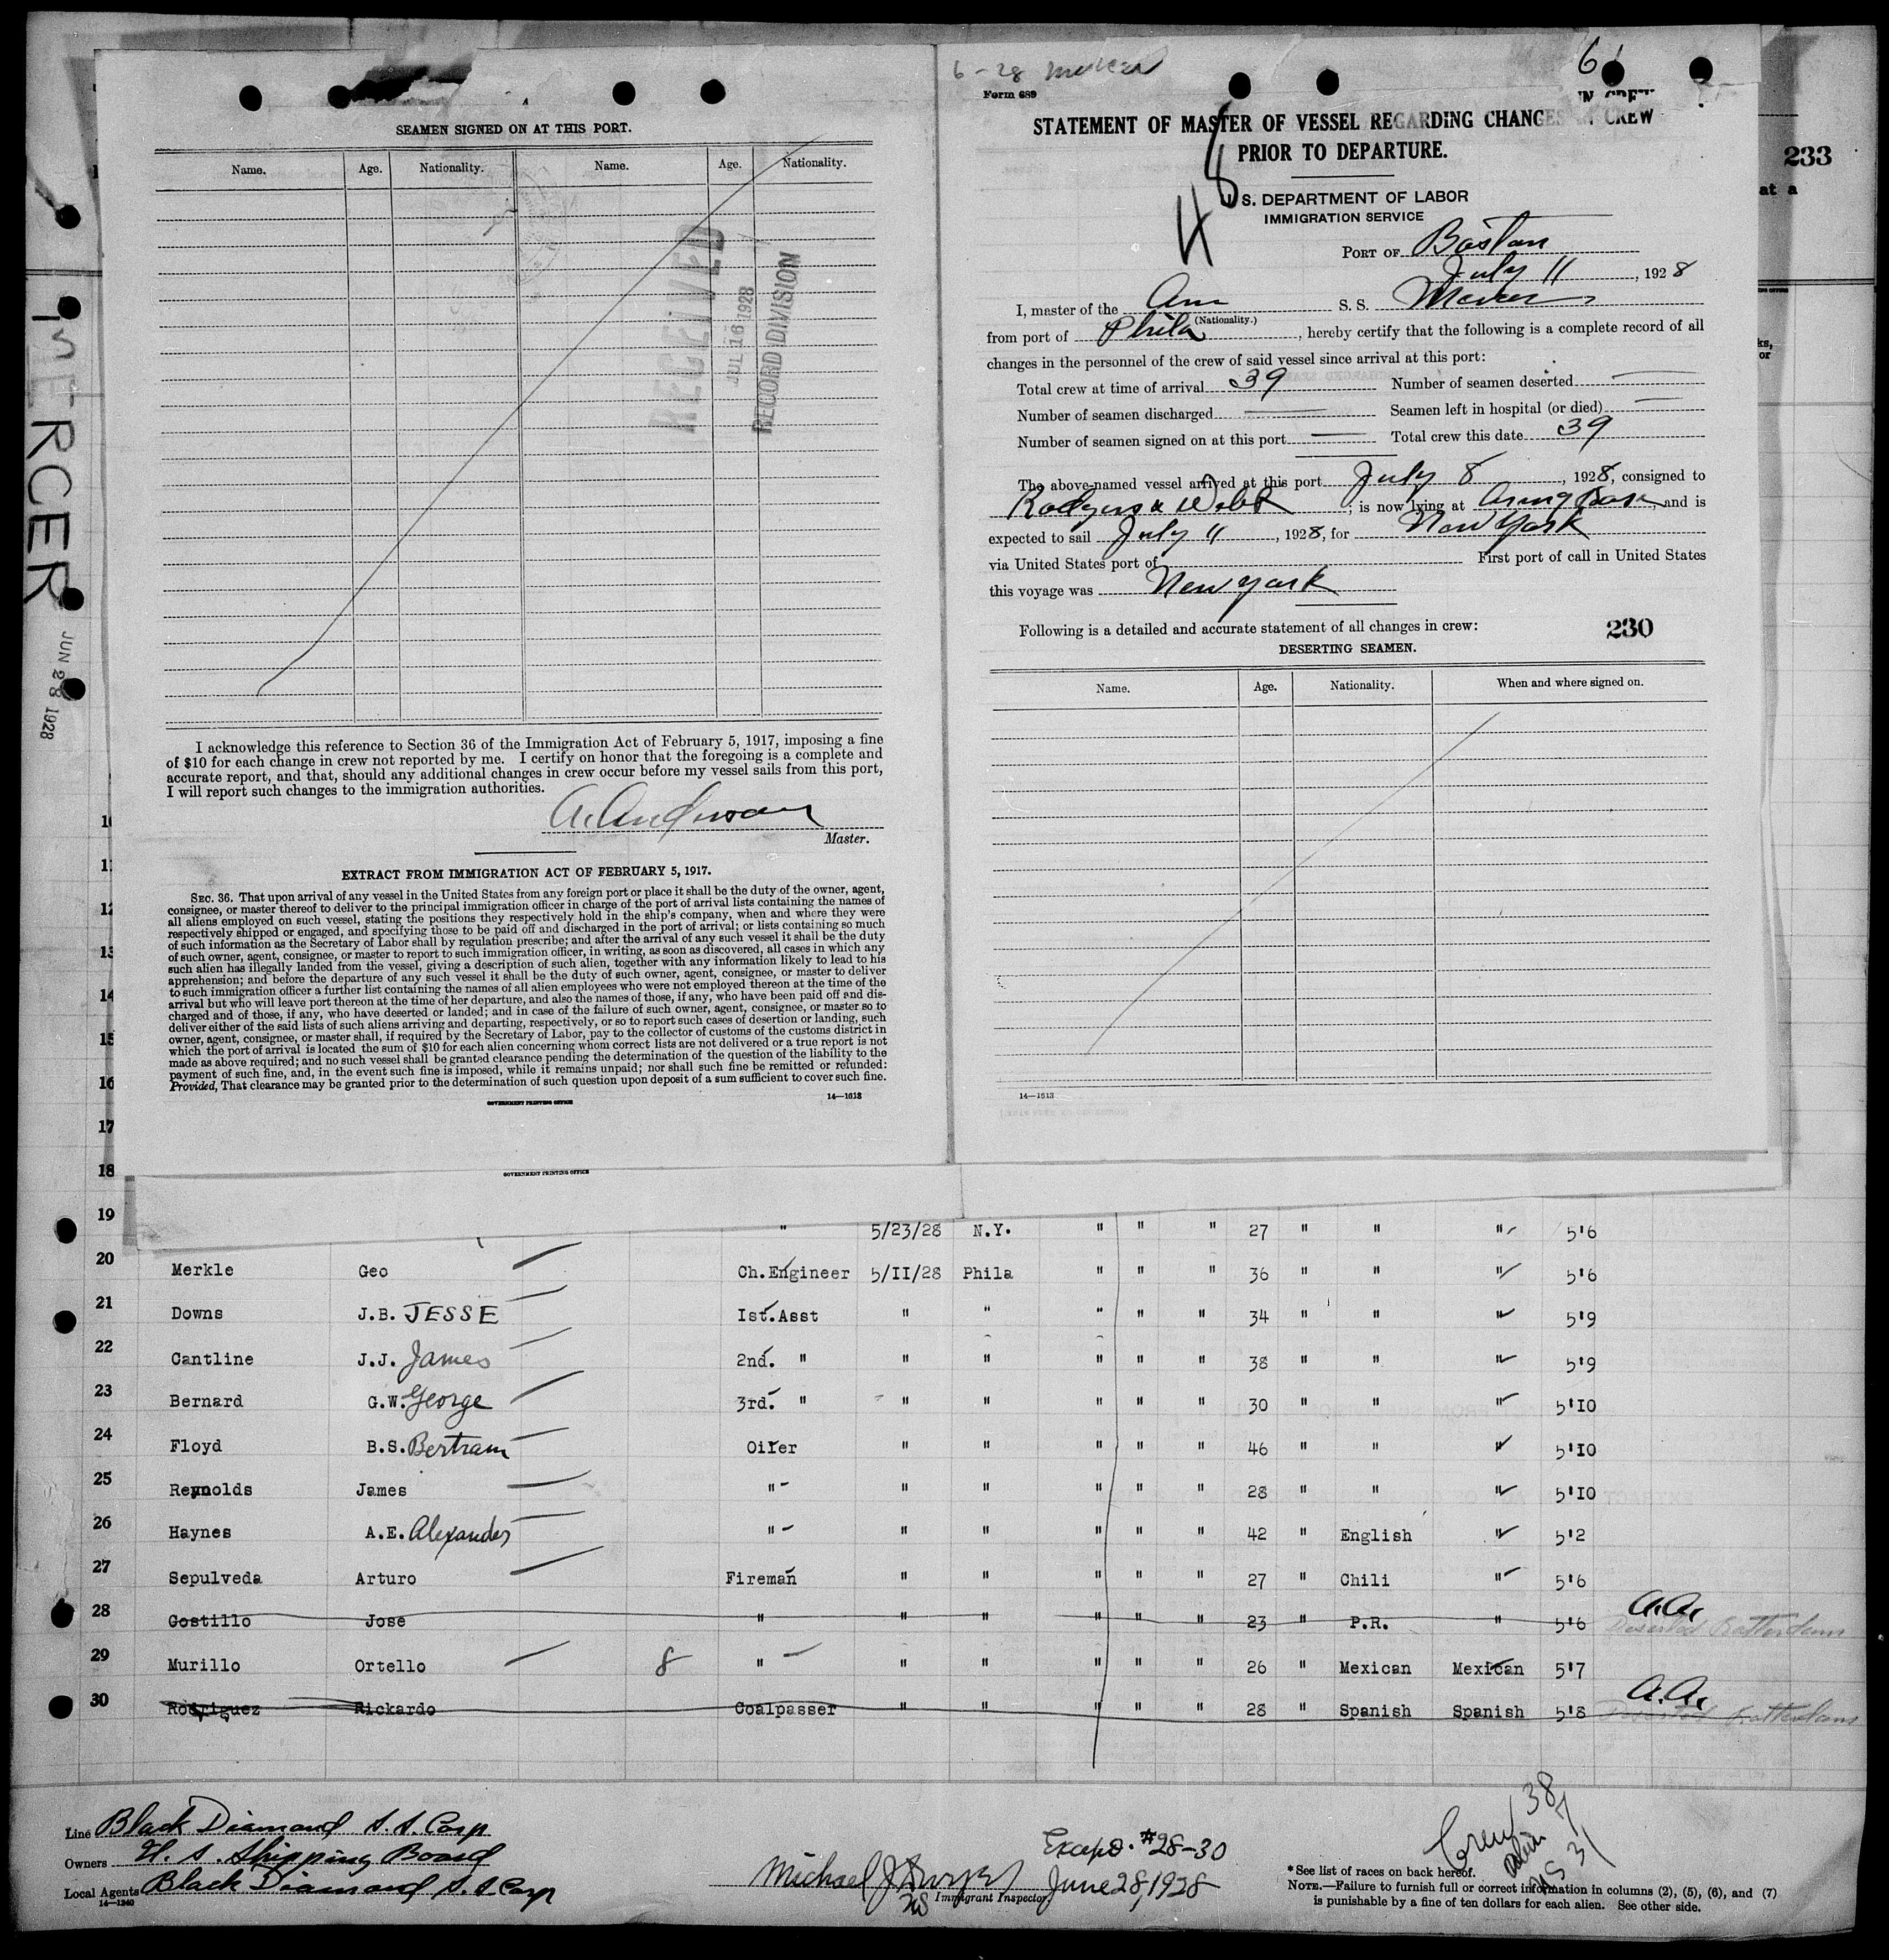 SEAMEN SIGNED ON AT THIS PORT.
Name. Age. Nationality. Name. Age. Nationality.
RECEIVED
JUL 16 1928
RECORD DIVISION
I acknowledge this reference to Section 36 of the Immigration Act of February 5, 1917, imposing a fine
of $10 for each change in crew not reported by me. I certify on honor that the foregoing is a complete and
accurate report, and that, should any additional changes in crew occur before my vessel sails from this port,
I will report such changes to the immigration authorities.
A. Anderson
Master.
EXTRACT FROM IMMIGRATION ACT OF FEBRUARY 5, 1917.
SEC. 36. That upon arrival of any vessel in the United States from any foreign port or place it shall be the duty of the owner, agent,
consignee, or master thereof to deliver to the principal immigration officer in charge of the port of arrival lists containing the names of
all aliens employed on such vessel, stating the positions they respectively hold in the ship's company, when and where they were
respectively shipped or engaged, and specifying those to be paid off and discharged in the port of arrival; or lists containing so much
of such information as the Secretary of Labor shall by regulation prescribe; and after the arrival of any such vessel it shall be the duty
of such owner, agent, consignee, or master to report to such immigration officer, in writing, as soon as discovered, all cases in which any
such alien has illegally landed from the vessel, giving a description of such alien, together with any information likely to lead to his
apprehension; and before the departure of any such vessel it shall be the duty of such owner, agent, consignee, or master to deliver
to such immigration officer a further list containing the names of all alien employees who were not employed thereon at the time of the
arrival but who will leave port thereon at the time of her departure, and also the names of those, if any, who have been paid off and dis-
charged and of those, if any, who have deserted or landed; and in case of the failure of such owner, agent, consignee, or master so to
deliver either of the said lists of such aliens arriving and departing, respectively, or so to report such cases of desertion or landing, such
owner, agent, consignee, or master shall, if required by the Secretary of Labor, pay to the collector of customs of the customs district in
which the port of arrival is located the sum of $10 for each alien concerning whom correct lists are not delivered or a true report is not
made as above required; and no such vessel shall be granted clearance pending the determination of the question of the liability to the
payment of such fine, and, in the event such fine is imposed, while it remains unpaid; nor shall such fine be remitted or refunded:
Provided, That clearance may be granted prior to the determination of such question upon deposit of a sum sufficient to cover such fine.
GOVERNMENT PRINTING OFFICE 14—1613
GOVERNMENT PRINTING OFFICE
6-28
Form 689
STATEMENT OF MASTER OF VESSEL REGARDING CHANGES IN CREW
PRIOR TO DEPARTURE.
U. S. DEPARTMENT OF LABOR
IMMIGRATION SERVICE
PORT OF Boston
July 11, 1928
I, master of the Am S. S. Mercer
(Nationality.)
from port of Phila, hereby certify that the following is a complete record of all
changes in the personnel of the crew of said vessel since arrival at this port:
Total crew at time of arrival 39 Number of seamen deserted
Number of seamen discharged Seamen left in hospital (or died)
Number of seamen signed on at this port Total crew this date 39
The above-named vessel arrived at this port July 8, 1928, consigned to
Rodgers & Webb, is now lying at Army Base, and is
expected to sail July 11, 1928, for New York
via United States port of First port of call in United States
this voyage was New York
Following is a detailed and accurate statement of all changes in crew: 230
DESERTING SEAMEN.
Name. Age. Nationality. When and where signed on.
14—1613
233
at a
ks,
or
MERCER
JUN 28 1928
10
11
12
13
14
15
16
17
18
19 " 5/23/28 N.Y. " " " 27 " " " 5'6
20 Merkle Geo Ch.Engineer 5/II/28 Phila " " " 36 " " " 5'6
21 Downs J.B. JESSE Ist.Asst " " " " " 34 " " " 5'9
22 Cantline J.J. James 2nd. " " " " " " 38 " " " 5'9
23 Bernard G.W. George 3rd. " " " " " " 30 " " " 5'IO
24 Floyd B.S. Bertram Oiler " " " " " 46 " " " 5'IO
25 Reynolds James " " " " " " 28 " " " 5'IO
26 Haynes A.E. Alexander " " " " " " 42 " English " 5'2
27 Sepulveda Arturo Fireman " " " " " 27 " Chili " 5'6
28 Gostillo Jose " " " " " " 23 " P.R. " 5'6 A.A. Deserted Rotterdam
29 Murillo Ortello 8 " " " " " " 26 " Mexican Mexican 5'7
30 Rodriguez Rickardo Coalpasser " " " " " 28 " Spanish Spanish 5'8 A.A. Deserted Rotterdam
Line Black Diamond S.S. Corp
Owners U.S. Shipping Board
Local Agents Black Diamond S.S. Corp
14—1240
Except. #28-30
Michael J. June 28, 1928
Immigrant Inspector
Crew 38
alien 7
US 31
* See list of races on back hereof.
NOTE.—Failure to furnish full or correct information in columns (2), (5), (6), and (7)
is punishable by a fine of ten dollars for each alien. See other side.